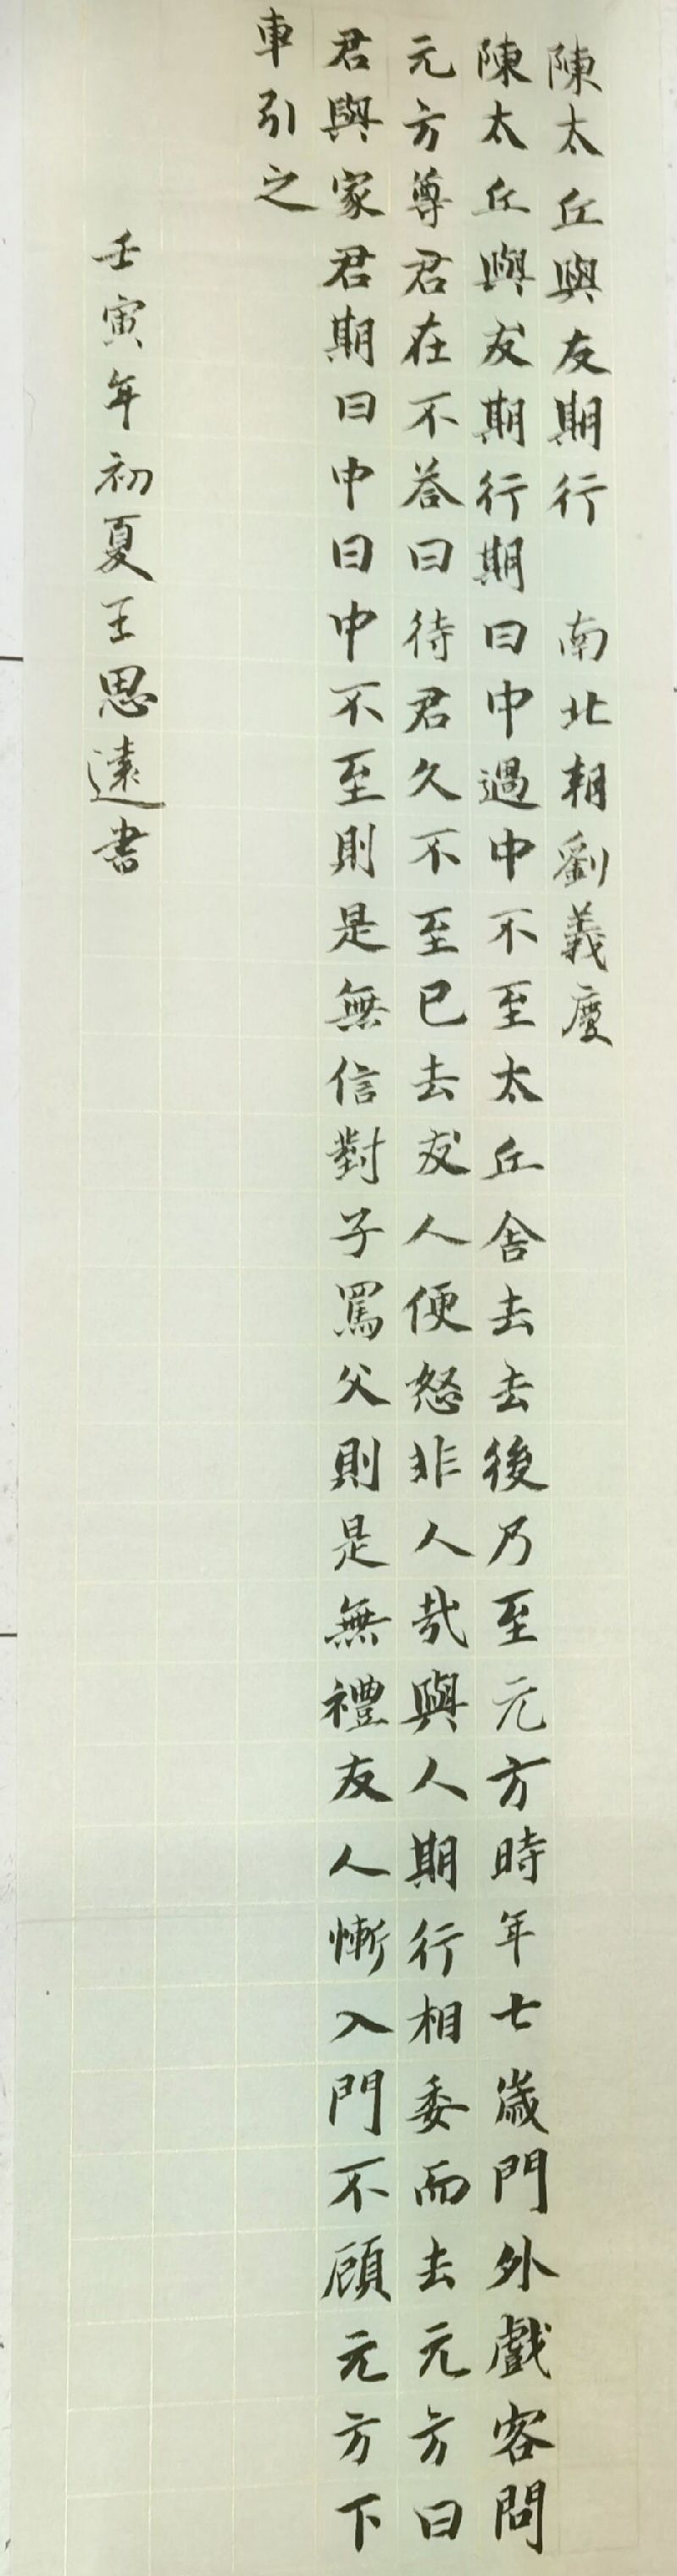 陳太丘與友期行 南北朝劉義慶
陳太丘與友期行期日中過中不至太丘舍去去後乃至元方時年七歲門外戲客問
元方尊君在不答曰待君久不至已去友人便怒非人哉與人期行相委而去元方曰
君與家君期日中日中不至則是無信對子罵父則是無禮友人慚入門不顧元方下
車引之
壬寅年初夏王思遠書